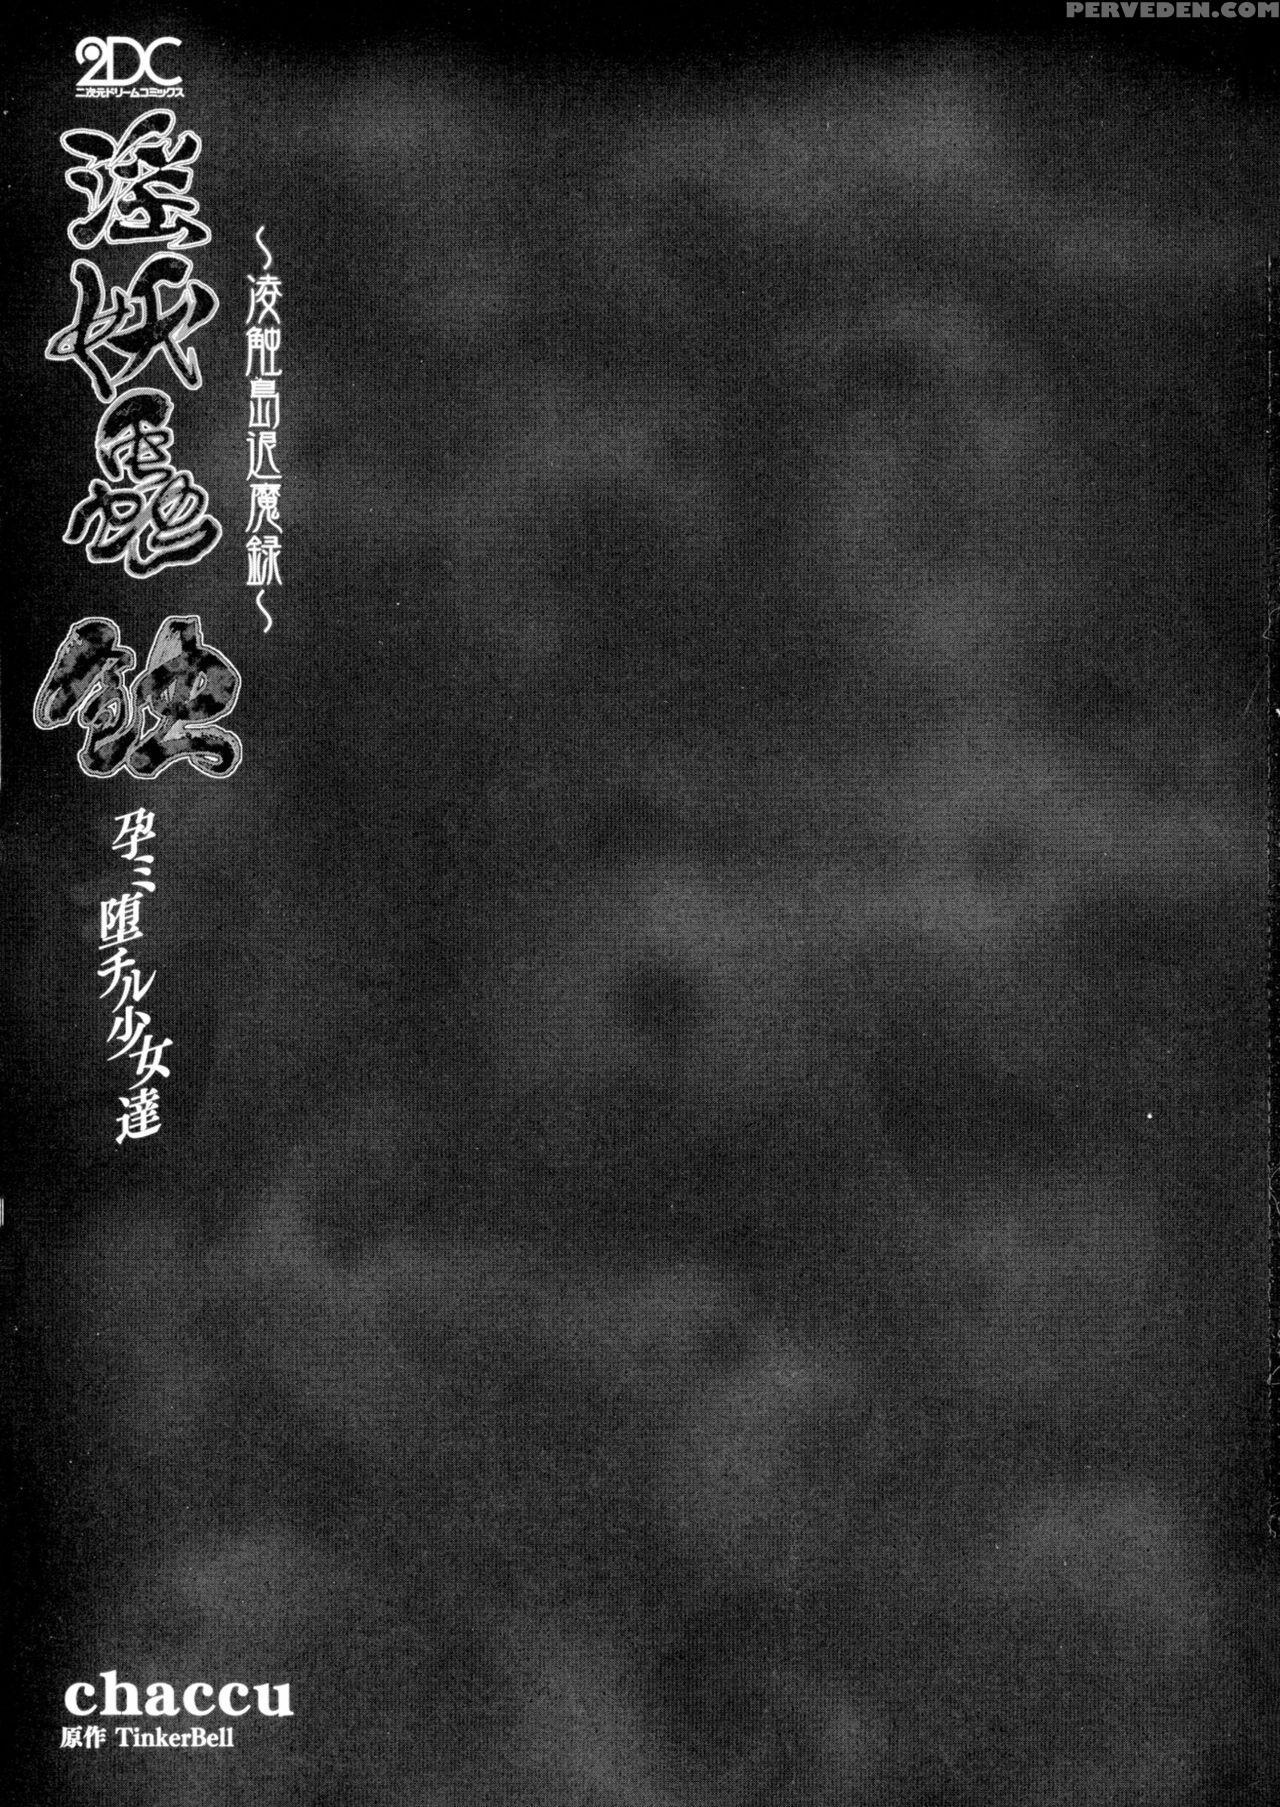 PERVEDEN.COM
2DC
二次元ドリームコミックス
淫妖蟲 蝕
～凌触島退魔録～
孕ミ堕チル少女達
chaccu
原作 TinkerBell